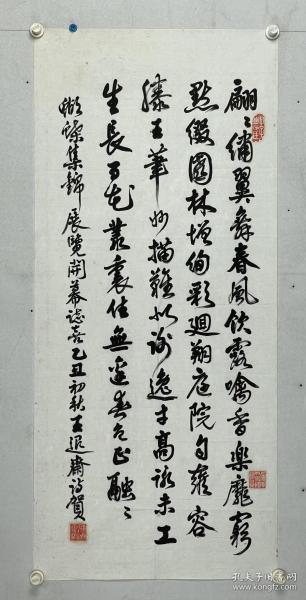 翩〻繡翼舞春風飲露噙香樂靡窮
點綴園林增絢彩迴翔庭院自雍容
滕王筆妙描難似謝逸才高詠未工
生長百花叢裏住無邊春色正融〻
蝴蝶集錦展覽開幕誌喜乙丑初秋王退齋詩賀
孔夫子旧书网